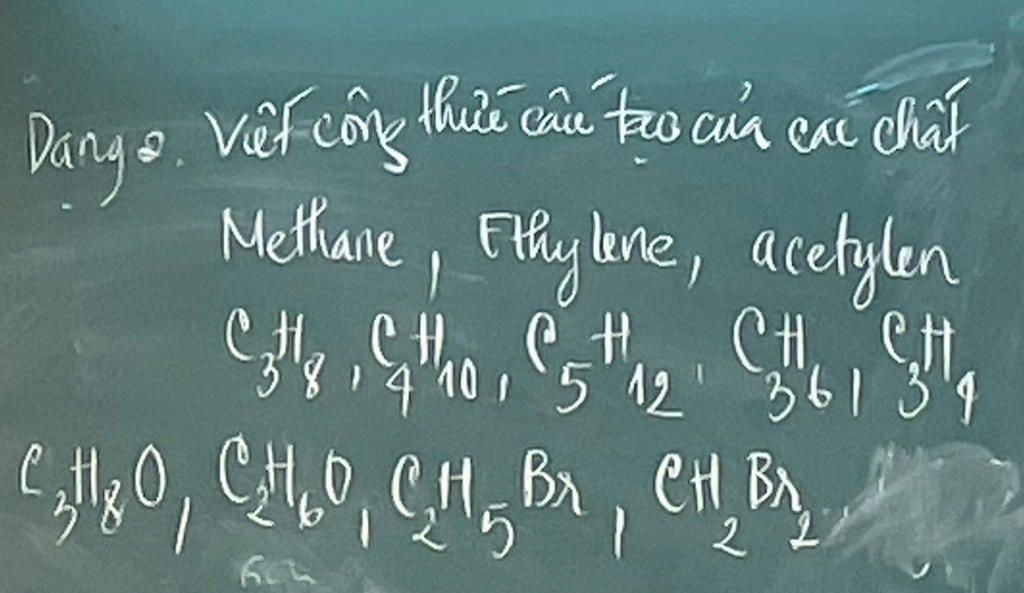 Dạng 2. Viết công thức cấu tạo của các chất
Methane, Ethylene, acetylen
C₃H₈, C₄H₁₀, C₅H₁₂, C₃H₆, C₃H₄
C₃H₈O, C₂H₆O, C₂H₅Br, CH₂Br₂.